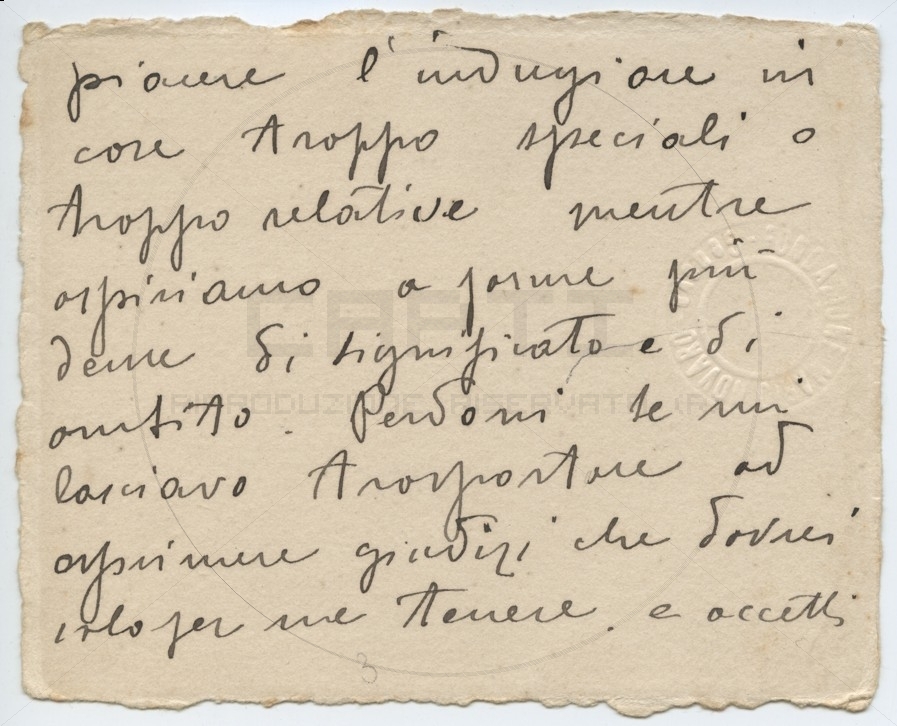 piacere l'indugiare in
cose troppo speciali o
troppo relative mentre
aspiriamo a forme più
dense di significato e di
ambito. Perdoni se mi
lasciavo trasportare ad
esprimere giudizi che dovrei
solo per me tenere. e accetti
3
CRAFTI
RIPRODUZIONE RISERVATA